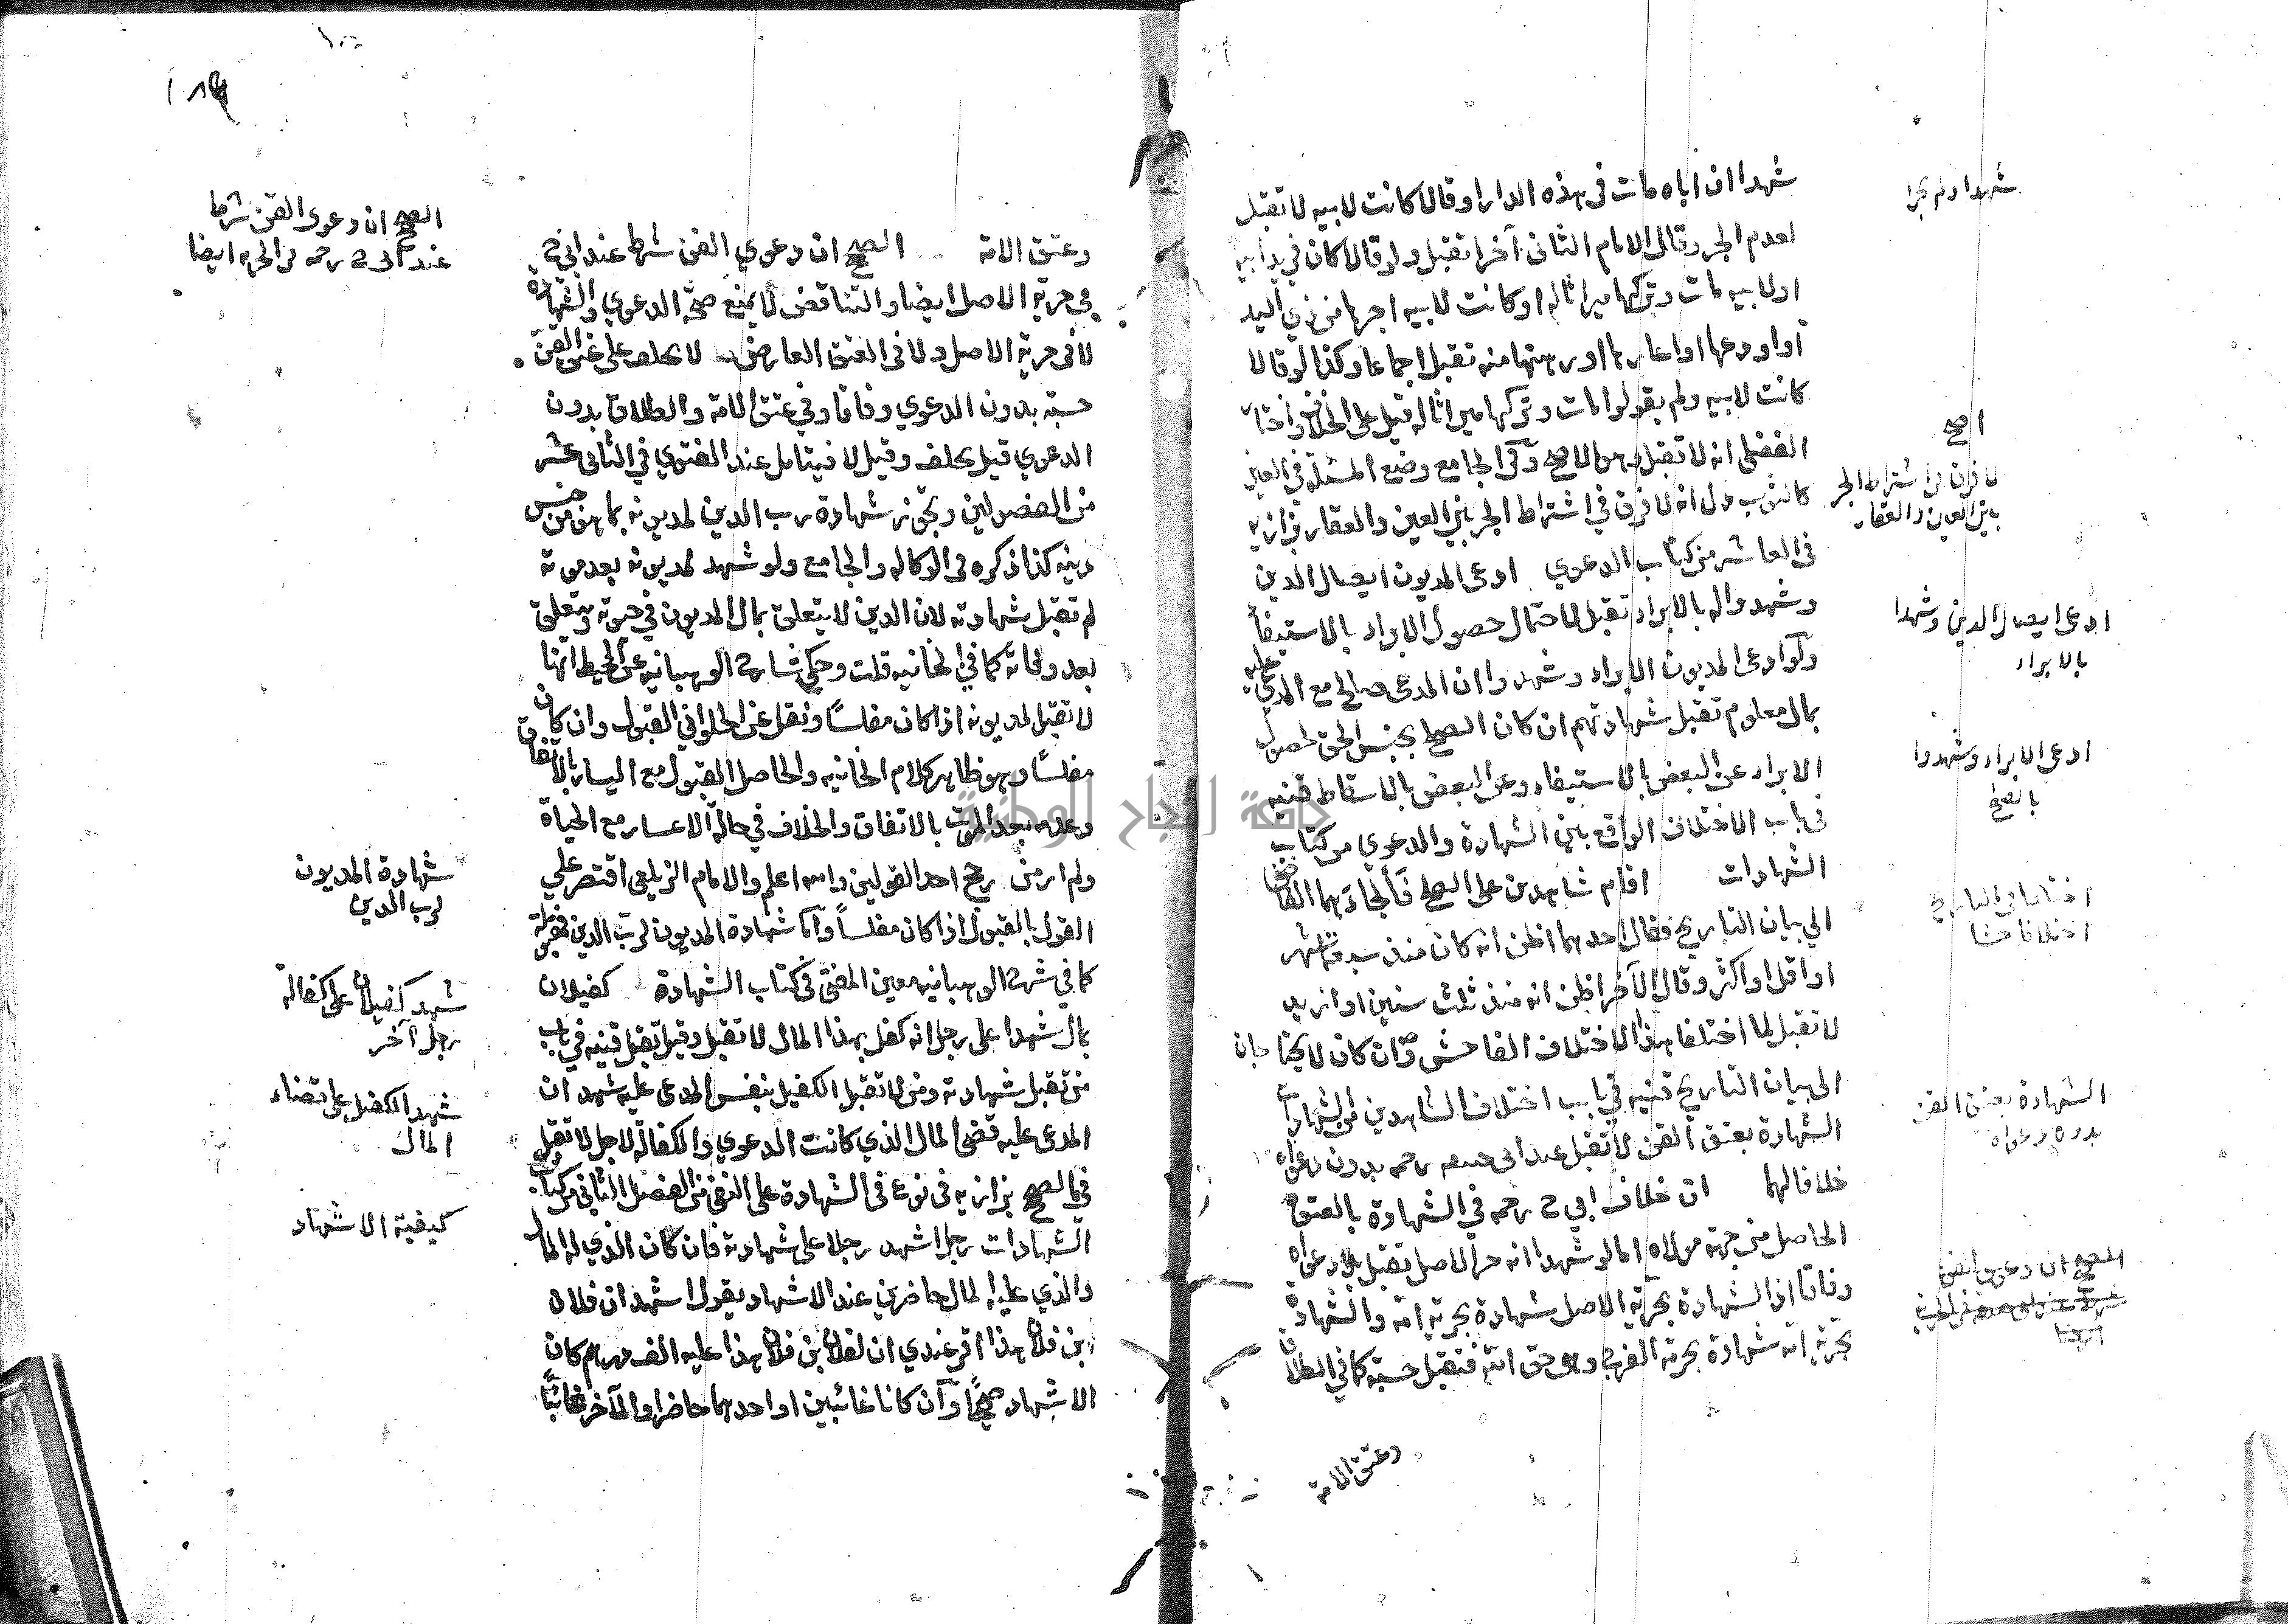 شهدا ان اباه مات فى هذه الدار او قالا كانت لابيه لا تقبل
لعدم الجر وقال الامام الثانى آخرا تقبل ولو قالا كان في يد ابيه
او لابيه مات وتركها ميراثا له او كانت لابيه اجرها من ذي اليد
او اودعها او اعارها او رهنها منه تقبل اجماعا وكذا لو قالا
كانت لابيه ولم يقولوا مات وتركها ميراثا له قيل على الخلاف واختار
الفضلى انه لا تقبل وهو الاصح وفى الجامع وضع المسئلة فى العين
كالثوب دل انه لا فرق فى اشتراط الجر بين العين والعقار بزازيه
فى العاشر من كتاب الدعوي ادعى المديون ايصال الدين
وشهدوا له بالابراء تقبل لاحتمال حصول الابراء بالاستيفاء
ولو ادعى المديون الابراء وشهدوا ان المدعى صالح مع المدعي عليه
بمال معلوم تقبل شهادتهم ان كان الصلح بجنس الحق لحصول
الابراء عن البعض بالاستيفاء وعن البعض بالاسقاط قنيه
فى باب الاختلاف الواقع بين الشهادة والدعوي من كتاب
الشهادات اقام شاهدين على الصلح فألجاءهما القاضى
الي بيان التاريخ فقال احدهما اظن انه كان منذ سبعة اشهر
او اقل او اكثر وقال الآخر اظن انه منذ ثلث سنين او ازيد
لا تقبل لما اختلفا هذا الاختلاف الفاحش وان كان لا يحتاجان
الى بيان التاريخ قنيه في باب اختلاف الشاهدين من الشهادات
الشهادة بعتق القن لا تقبل عند ابى حنيفه رحمه بدون دعواه
خلافا لهما ان خلاف ابي ح رحمه في الشهادة بالعتق
الحاصل من جهة مولاه اما لو شهدا انه حر الاصل تقبل بلا دعواه
وفاقا اذ الشهادة بحرية الاصل شهادة بحرية امه والشهادة
بحرية امه شهادة بحرمة الفرج وهى حق الله فتقبل حسبة كما في الطلاق
وعتق الامة
شهدا ولم يجرا
اصح
لا فرق فى اشتراط الجر
بين العين والعقار
ادعى ايصال الدين وشهدا
بالابراء
ادعى الابراء وشهدوا
بالصلح
اختلفا فى التاريخ
اختلافا فاحشا
الشهادة بعتق القن
بدون دعواه
الصحيح ان دعوي القن
ايضا
وعتق الامة الصحيح ان دعوي القن شرط عند ابي ح
في حرية الاصل ايضا والتناقض لا يمنع صحة الدعوي والشهادة
لا فى حرية الاصل ولا فى العتق العارض لا يحلف على عتق القن
حسبة بدون الدعوي وفاقا وفي عتق الامة والطلاق بدون
الدعوي قيل يحلف وقيل لا فيتامل عند الفتوي في الثانى عشر
من الفصولين وتجوز شهادة رب الدين لمديونه بما هو من جنس
دينه كذا ذكره فى الوكاله والجامع ولو شهد لمديونه بعد موته
لم تقبل شهادته لان الدين لا يتعلق بمال المديون في حيوته ويتعلق
بعد وفاته كما في الخانيه قلت وحكى شارح الوهبانيه عن المحيط انها
لا تقبل لمديونه اذا كان مفلسا ونقل عن الحلواني القبول وان كان
مفلسا وهو ظاهر كلام الخانيه والحاصل القبول مع اليسار بالاتفاق
وعدمه بعد الموت بالاتفاق والخلاف في حالة الاعسار مع الحياة
ولم ار من رجح احد القولين والله اعلم والامام الزيلعي اقتصر علي
القول بالقبول اذا كان مفلسا واما شهادة المديون لرب الدين فمقبولة
كما في شرح الوهبانيه معين المفتى فى كتاب الشهادة كفيلان
بمال شهدا على رجل انه كفل بهذا المال لا تقبل وقيل تقبل قنيه في باب
من تقبل شهادته ومن لا تقبل الكفيل بنفس المدعى عليه شهد ان
المدعى عليه قضى المال الذي كانت الدعوي والكفالة لاجل لا تقبل
في الصحيح بزازيه فى نوع فى الشهادة على النفى من الفصل الثانى من كتاب
الشهادات رجل اشهد رجلا على شهادته فان كان الذي له المال
والذي عليه المال حاضرين عند الاشهاد يقول اشهد ان فلان
بن فلان هذا اقر عندي ان لفلان بن فلان هذا عليه الف درهم كان
الاشهاد صحيحا وان كانا غائبين او احدهما حاضرا والآخر غائبا
الصحيح ان دعوى القن شرط
عند ابى ح رحمه فى الحريه ايضا
شهادة المديون
لرب الدين
شهد كفيلان على كفالة
رجل آخر
شهد الكفيل على قضاء
المال
كيفية الاشهاد
جامعة النجاح الوطنية